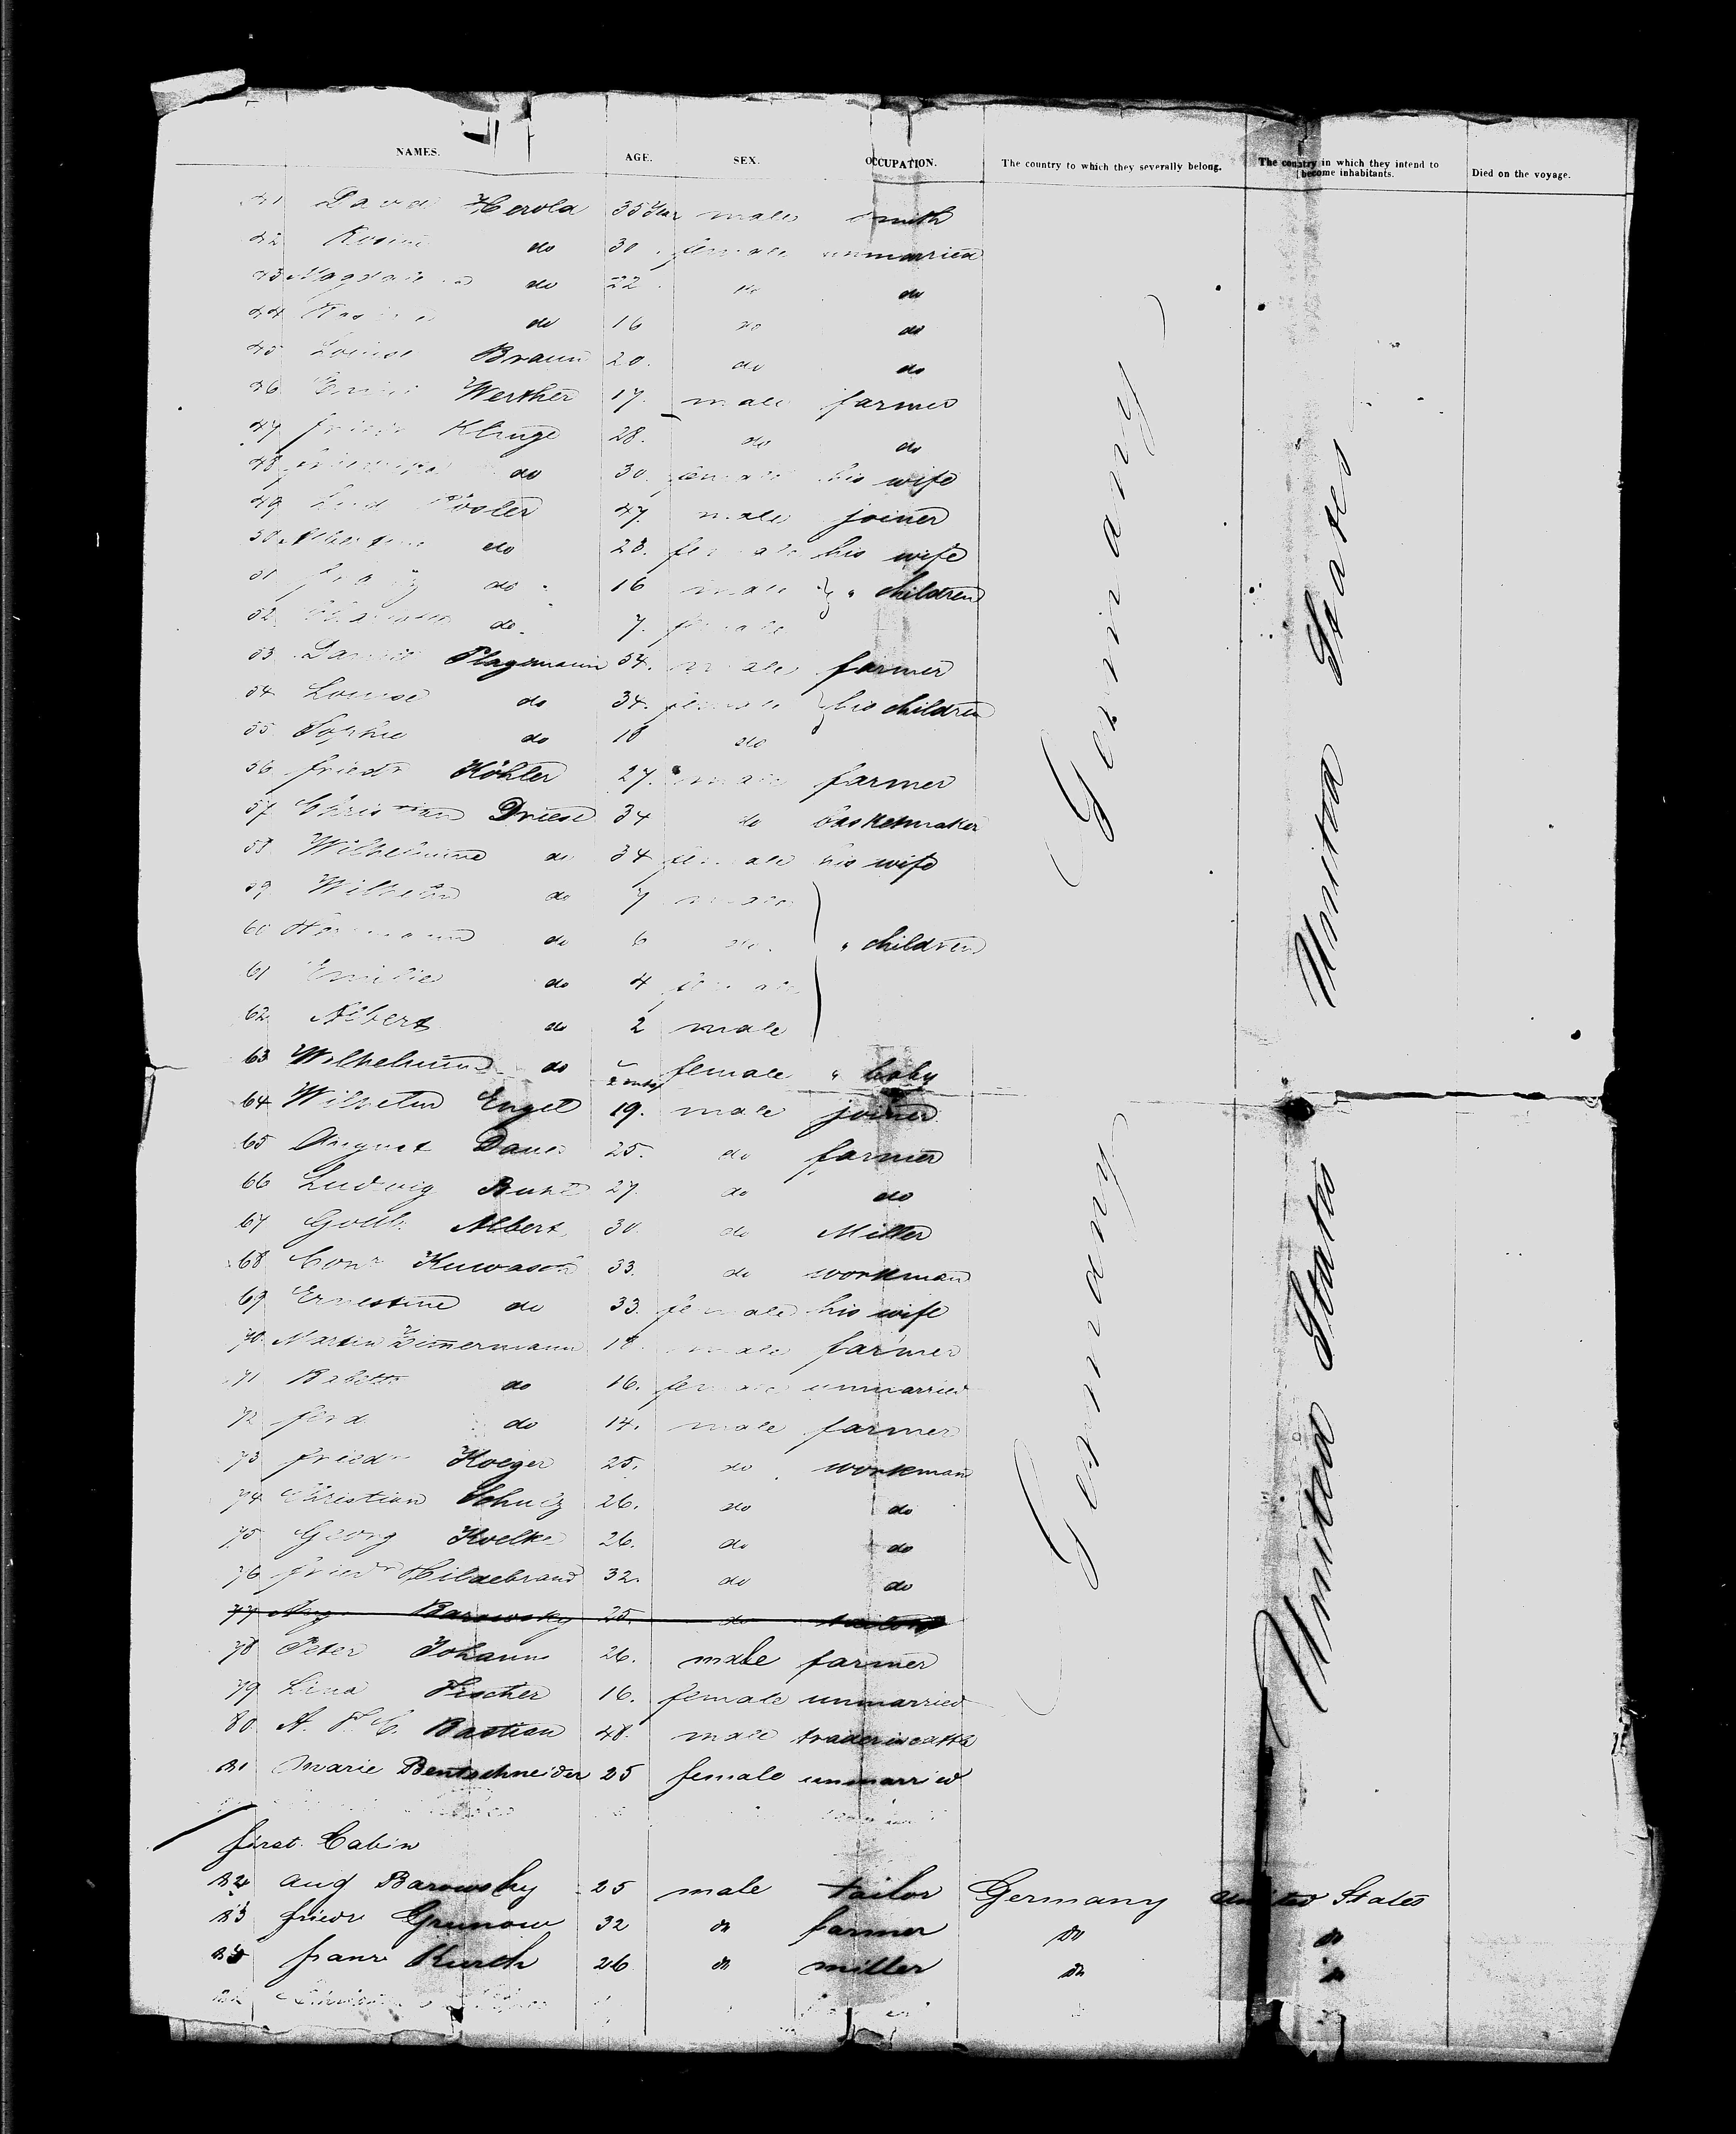 NAMES. AGE. SEX. OCCUPATION. The country to which they severally belong. The country in which they intend to become inhabitants. Died on the voyage.
41 David Herold 35 Year male smith
42 do 30 female unmarried
43 Magdalena do 22 do do
44 do 16 do do
45 Louise Braun 20. do do
46 Werther 17. male farmer
47 Friedr Kluge 28. do do
48 do 30 female his wife
49 47. male joiner
50 Albertine do 28. female his wife
51 do 16 male " children
52 do 7. female
53 Plagemann 54. male farmer
54 Louise do 34. female his children
55 Sophie do 18 do
56 Friedr Köhler 27. male farmer
57 Christian Driese 34 do basketmaker
58 Wilhelmine do 34 female his wife
59 Wilhelm do 7 male
60 Hermann do 6 do " children
61 Emilie do 4 female
62 Albert do 2 male
63 Wilhelmine do female " baby
64 Wilhelm Engel 19. male joiner
65 August 25. do farmer
66 Ludwig 27. do do
67 Gottl. Albert 30 do Miller
68 Conr 33. do workman
69 Ernestine do 33. female his wife
70 Martin Zimermann 18 male farmer
71 Babette do 16. female unmarried
72 Ferd do 14. male farmer
73 Friedr 25. do workman
74 Christian Schulz 26. do do
75 Georg Koelke 26. do do
76 Friedr Hildebrand 32. do do
77 Aug Barowsky 25. do tailor
78 Peter Johann 26. male farmer
79 Lina Fischer 16. female unmarried
80 Bastian 48. male trader in cattle
81 Marie Bentschneider 25 female unmarried
Germany
United States
Germany
United States
first Cabin
82 Aug Barowsky 25 male tailor Germany United States
83 Friedr Grunow 32 do farmer do do
84 Kurth 26 do miller do do